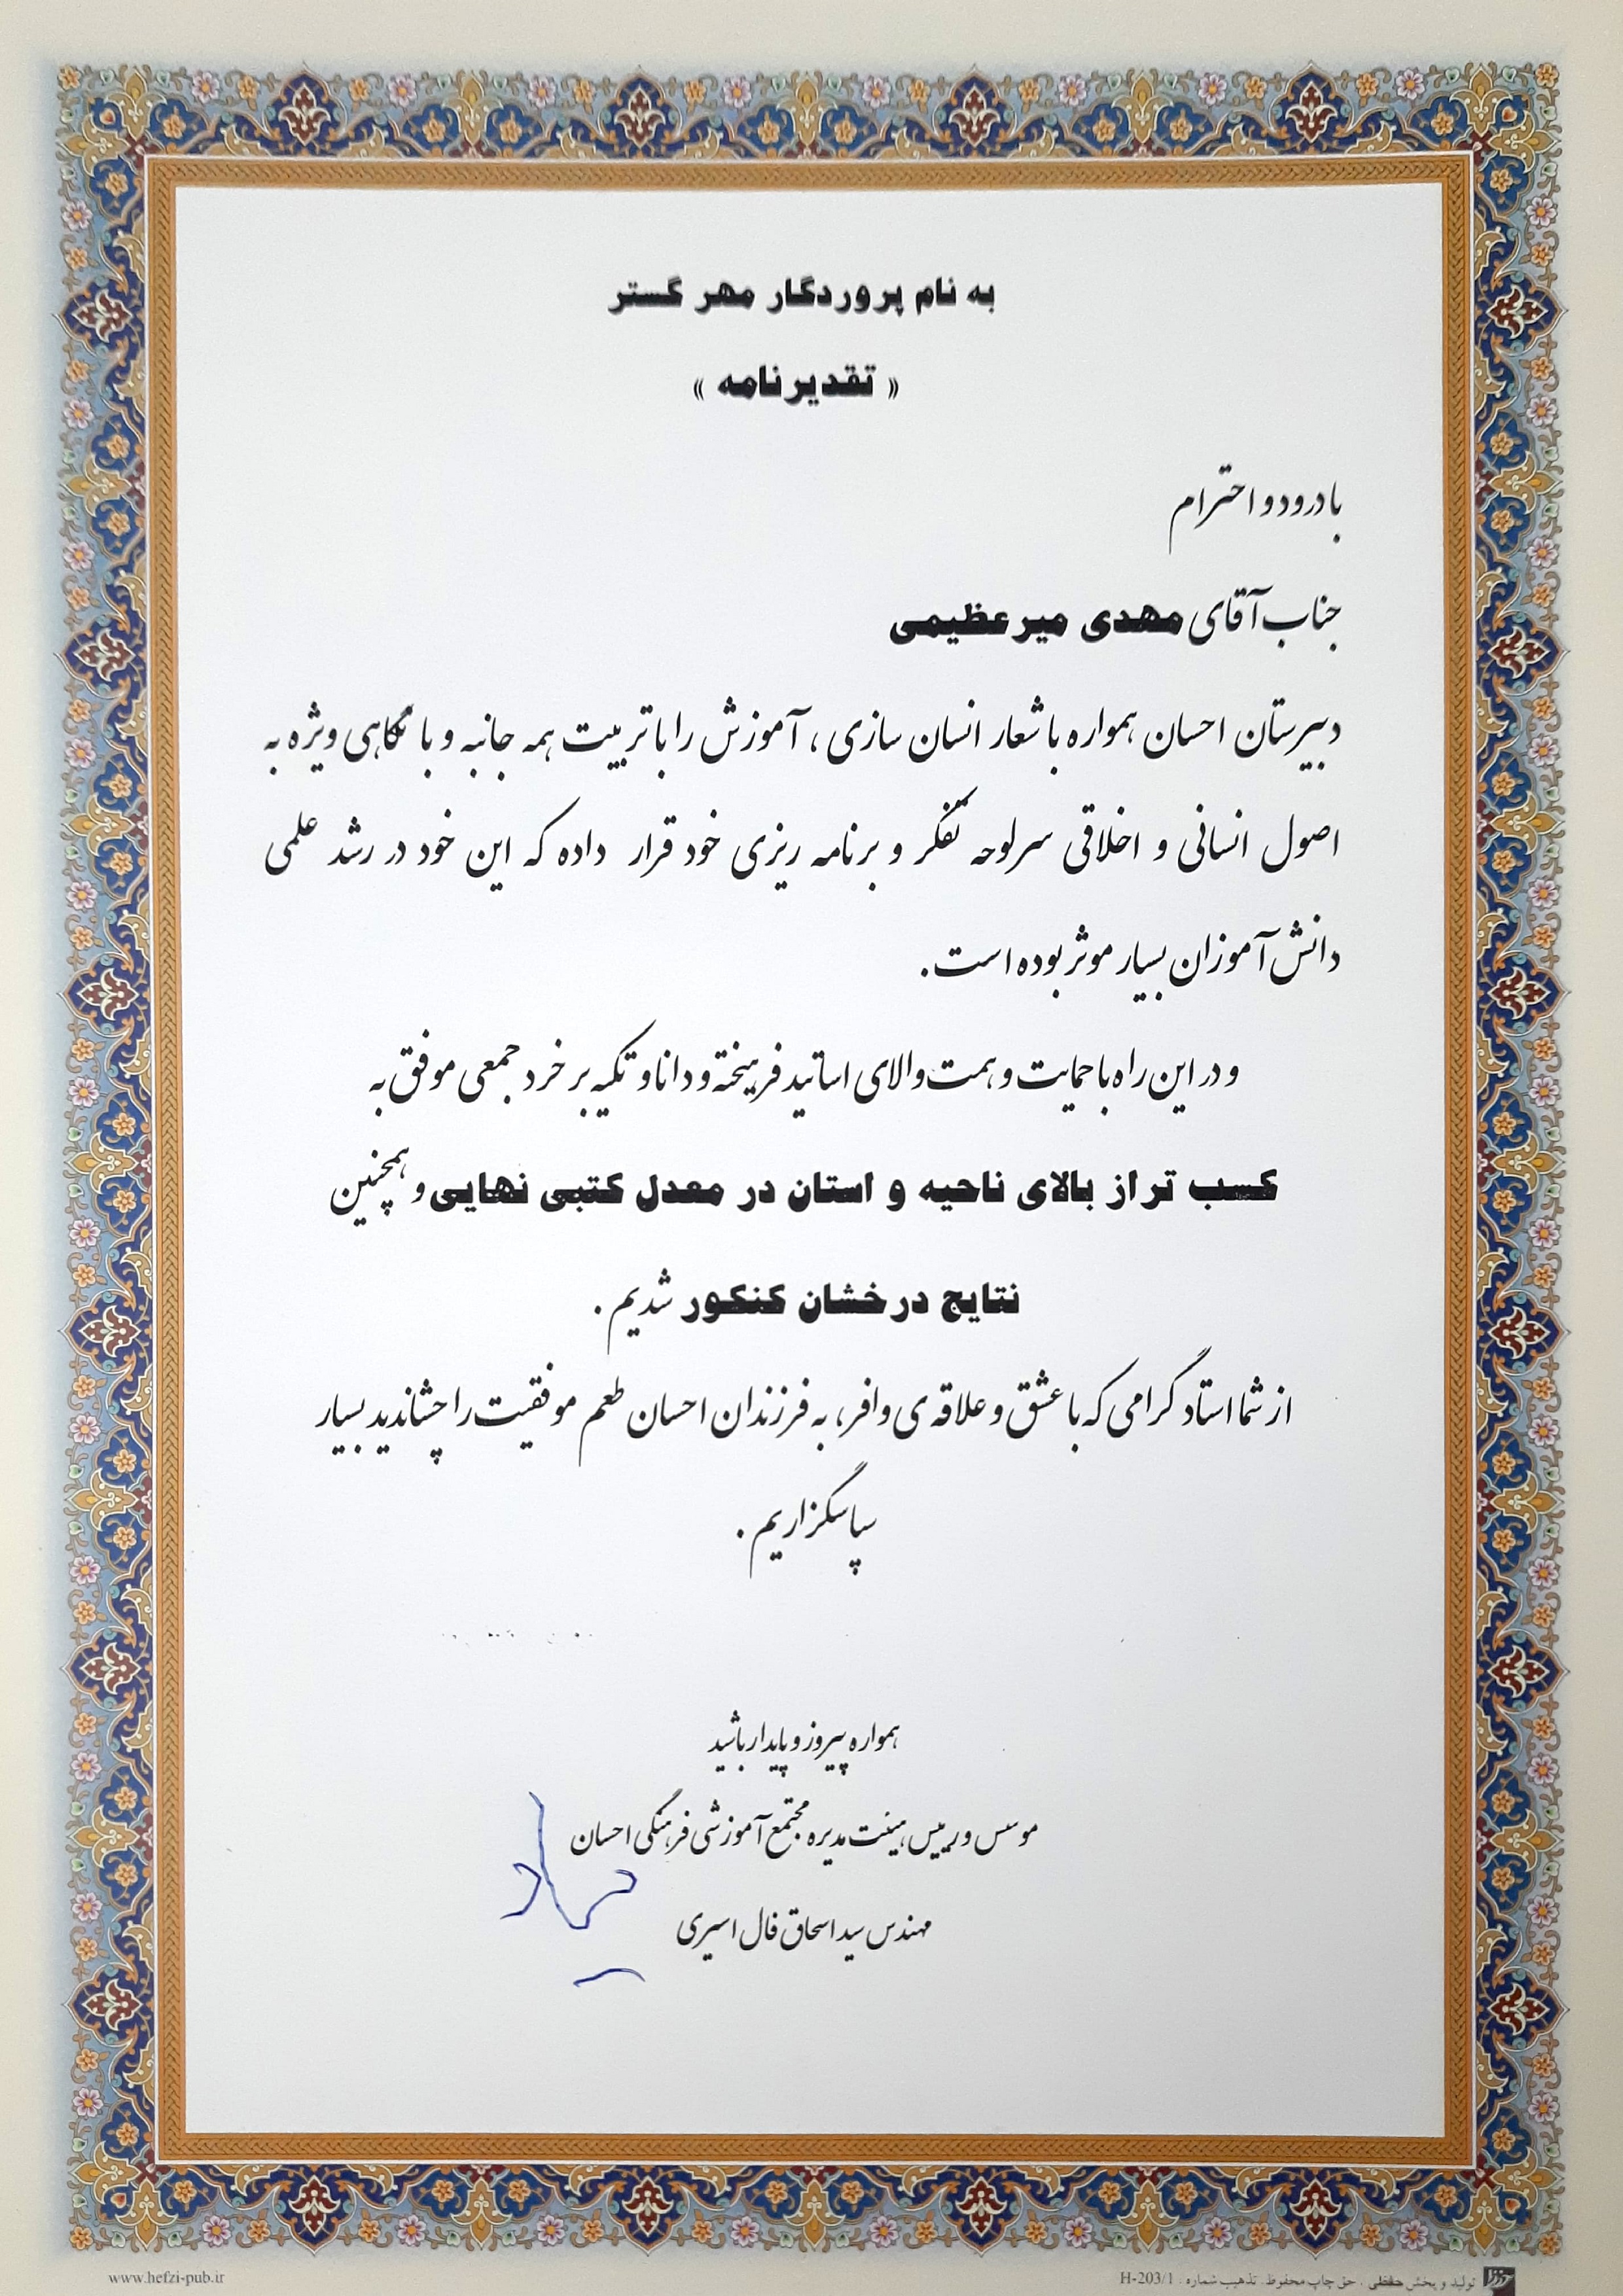 به نام پروردگار مهر گستر
« تقدیرنامه »
با درود و احترام
جناب آقای مهدی میرعظیمی
دبیرستان احسان همواره با شعار انسان سازی ، آموزش را با تربیت همه جانبه و با نگاهی ویژه به
اصول انسانی و اخلاقی سرلوحه تفکر و برنامه ریزی خود قرار داده که این خود در رشد علمی
دانش آموزان بسیار موثر بوده است.
و در این راه با حمایت و همت والای اساتید فرهیخته و دانا و تکیه بر خرد جمعی موفق به
کسب تراز بالای ناحیه و استان در معدل کتبی نهایی و همچنین
نتایج درخشان کنکور شدیم .
از شما استاد گرامی که با عشق و علاقه ی وافر، به فرزندان احسان طعم موفقیت را چشاندید بسیار
سپاسگزاریم .
همواره پیروز و پایدار باشید
موسس و رییس هیئت مدیره مجتمع آموزشی فرهنگی احسان
مهندس سید اسحاق فال اسیری
www.hefzi-pub.ir
تولید و پخش حفظی . حق چاپ محفوظ. تذهیب شماره : H-203/1